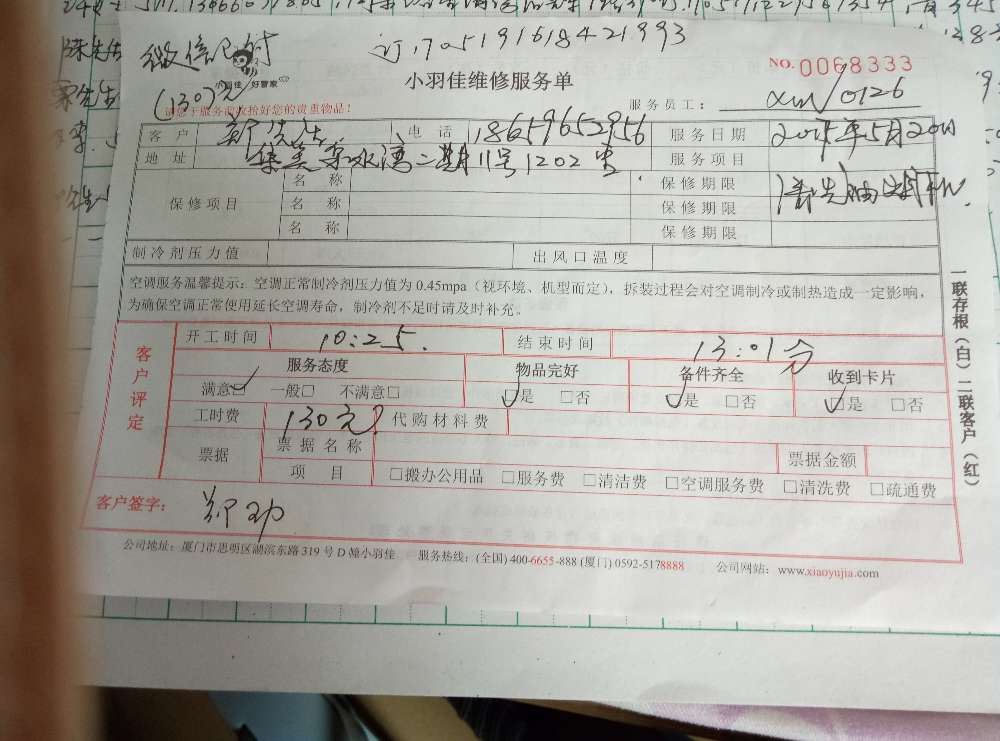 微信已付
订170519161842 1993
(130)元
小羽佳 好管家
小羽佳维修服务单
NO. 0068333
请您于服务前收拾好您的贵重物品!
服务员工: xm/0126
客户 郑先生 电话 18659652956 服务日期 2017年5月20日
地址 集美 杏水湾二期11号1202室 服务项目 清洗油烟机
保修项目 名称 保修期限
名称 保修期限
名称 保修期限
制冷剂压力值 出风口温度
空调服务温馨提示:空调正常制冷剂压力值为 0.45mpa(视环境、机型而定),拆装过程会对空调制冷或制热造成一定影响,
为确保空调正常使用延长空调寿命,制冷剂不足时请及时补充。
客户评定
开工时间 10:25. 结束时间 13:01分
服务态度 物品完好 备件齐全 收到卡片
满意☑ 一般□ 不满意□ ☑是 □否 ☑是 □否 ☑是 □否
工时费 130元 代购材料费
票据 票据名称 票据金额
项目 □搬办公用品 □服务费 □清洁费 □空调服务费 □清洗费 □疏通费
客户签字:
公司地址:厦门市思明区湖滨东路 319 号 D 幢小羽佳 服务热线:(全国) 400-6655-888 (厦门) 0592-5178888 公司网站:www.xiaoyujia.com
一联存根(白)二联客户(红)